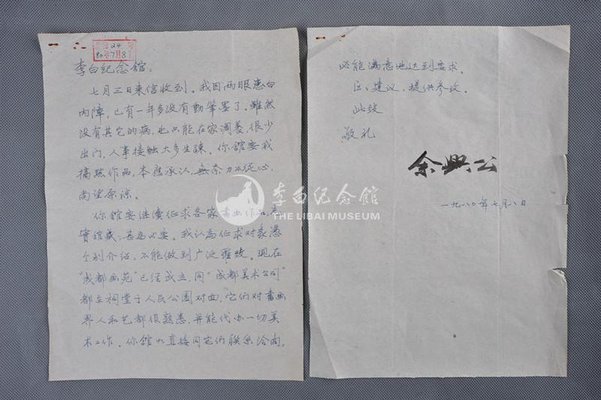 李白纪念馆：
七月三日来信收到。我因两眼患白
内障，已有一年多没有动笔墨了。虽然
没有其它的病，也只能在家调养，很少
出门，人事接触大多生疏。你馆要我
撝作画，本应承认，无奈力不从心，
尚望原谅。
你馆要继续征求各家书画作品充
实馆藏，甚为必要。我认为征求对象凭
个别介绍，不能做到广泛罗致。现在
“成都画苑”已经成立，同“成都美术公司”
都在祠堂街人民公园对面，它们对书画
界人和艺都很熟悉，并能代办一切美
术工作。你馆可直接同它们联系洽商，
必能满意地达到要求。
这个建议，提供参考。
此致
敬礼
余兴公
一九八〇年七月八日
李白纪念馆
THE LIBAI MUSEUM